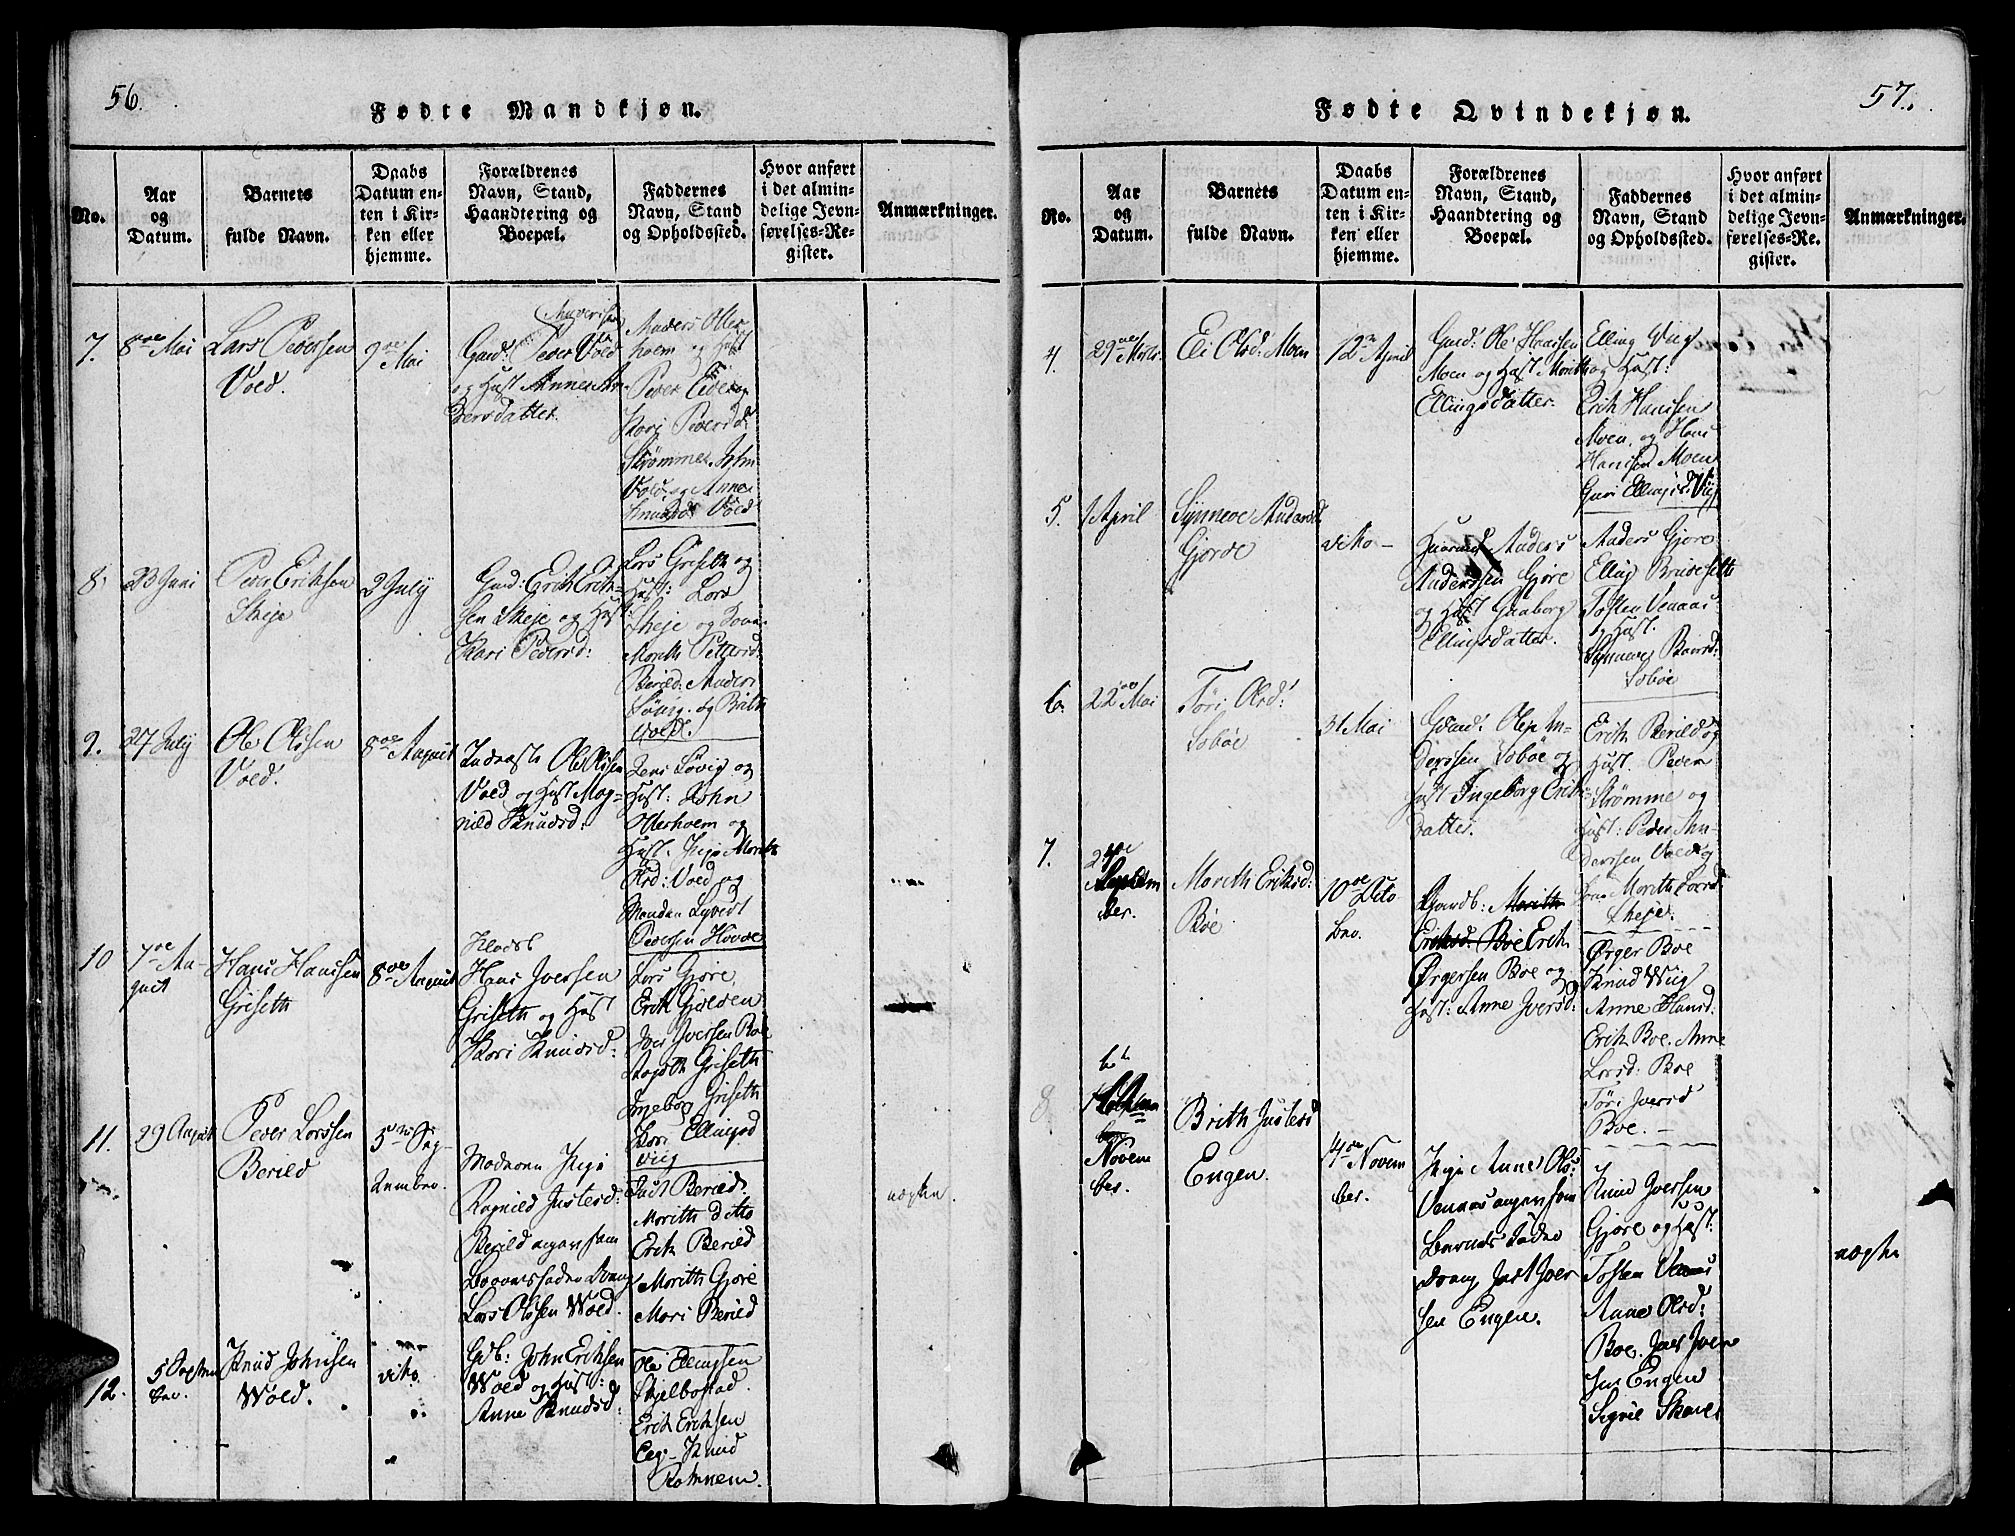 56.
Fødte Mandkjøn.
No.
Aar
og
Datum.
Barnets
fulde Navn.
Daabs
Datum en-
ten i Kir-
ken eller
hjemme.
Forældrenes
Navn, Stand,
Haandtering og
Boepæl.
Faddernes
Navn, Stand
og Opholdssted.
Hvor anført
i det almin-
delige Jevn-
førelses-Re-
gister.
Anmærkninger.
7.
8de Mai
Lars Pedersen
Vold.
9de Mai
Gard: Peder Vold
og Hust Anne An-
dersdatter.
Anders Otter
hoem og Hust
Peder Eide og
Kari Pedersd:
Strømme. John
Vold, og Anne
Knudsd Vold
8.
23 Juni
Peder Eriksen
Skeje
2 July
Gard: Erik Erik-
sen Skeje og Hust
Kari Pedersd:
Lars Griseth og
Hust: Lars
Skeje og Kone
Marith Pettersd:
Berild: Anders
Løvig. og Brith
Vold.
9.
27 July
Ole Olssen
Vold.
8de August
Inderste Ole Olsen
Vold og Hust Mag-
nild Knudsd:
Jens Løvig og
Hust: John
Otterhoem og
Hust. Pige Marith
Olsd: Vold og
Manden Syvert
Pedersen Hovde
10
7de Au-
gust
Hans Hanssen
Griseth
8de August
Hans Iversen
Griseth og Hust
Kari Knudsd:
Lars Gjøre,
Erik Gjelden
Iver Iversen Boe
Aagoth Griseth
Ingebor Griseth
Kari Ellingsd
Viig
11.
29 August
Peder Larssen
Berild
5te Sep-
tember.
Moderen Pige
Ragnild Justersd:
Berild angav som
Barnefader Dreng
Lars Olssen Wold.
Just Berild.
Marith ditto
Erik Berild
Marith Gjøre
Mari Berild
nægten.
12.
5 Septem
ber.
Knud Johnsen
Wold.
dito.
Gdb: John Eriksen
Wold og Hust:
Anne Knudsd:
Ole Ellingsen
Skjelbostad.
Erik Eriksen
Knud
57.
Fødte Qvindekjøn.
No.
Aar
og
Datum.
Barnets
fulde Navn.
Daabs
Datum en-
ten i Kir-
ken eller
hjemme.
Forældrenes
Navn, Stand,
Haandtering og
Boepæl.
Faddernes
Navn, Stand
og Opholdssted.
Hvor anført
i det almin-
delige Jevn-
førelses-Re-
gister.
Anmærkninger.
4.
29de Marts.
Eli Olsd: Moen
12te April
Gard: Ole Hansen
Moen og Hust Marith
Ellingsdatter.
Elling Viig
og Hust:
Erik Hansen
Moen, og Hans
Hansen Moen
Guri Ellingsd: Viig
5.
1 April
Synneve Andersd.
Gjøre
dito —
Anders
Anderssen Gjøre
og Hust Guaborg
Ellingsdatter.
Anders Gjøre
Elling Brudeseth
Tosten Venaas
og Hust.
Synneve
Søbøe
6.
22de Mai
Tøri Olsd:
Søbøe
31 Mai
Gard: Ole An-
derssen Søbøe og
Hust Ingeborg Eriks-
datter.
Erik Berild og
Hust. Peder
Strømme og
Hust: Peder An-
derssen Vold og
Marith Larsd:
Skeje.
7.
24de
Septem
ber.
Marith Eriksd:
Böe
10de Octo
ber.
Gaardb: Marith
Eriksd: Böe Erik
Ørgersen Boe og
Hust: Anne Iversd:
Ørger Boe
Knud Wiig
Anne Hansd:
Erik Boe. Anne
Larsd: Boe
Töri Iversd
Boe. —
8
Novem
ber.
Brith Justersd
Engen.
14de Novem
ber.
Pige Anne Ols:
Venaas angav som
Barnets Fader
Dreng Just Iver
sen Engen.
Knud Iversen
Gjøre og Hust:
Tosten Venaas
Anne Olsd:
Boe. Jaes Iver
sen Engen
Sigril Skare
nægten